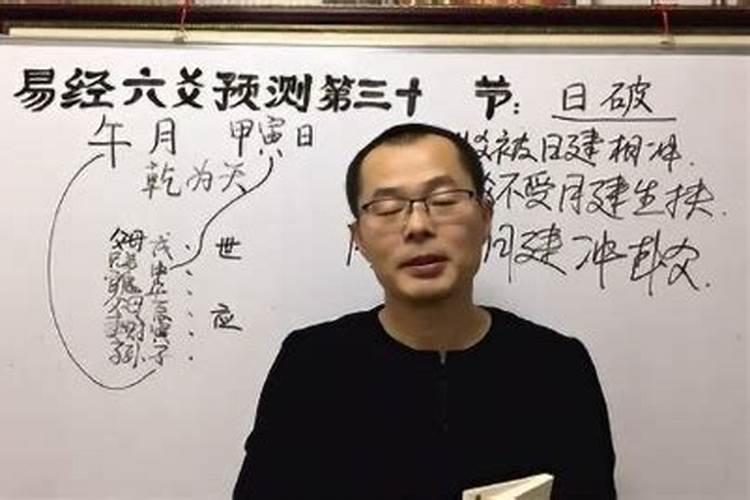 易经六爻预测第三十 节: 日破
午月 甲寅日
乾为天
爻被日建相冲.
不受月建生扶.
日建冲卦爻.
父母 戌 、 世
兄弟 申 、
官鬼 午 、
父母 辰 、 应
妻财 寅 、
子孙 子 、